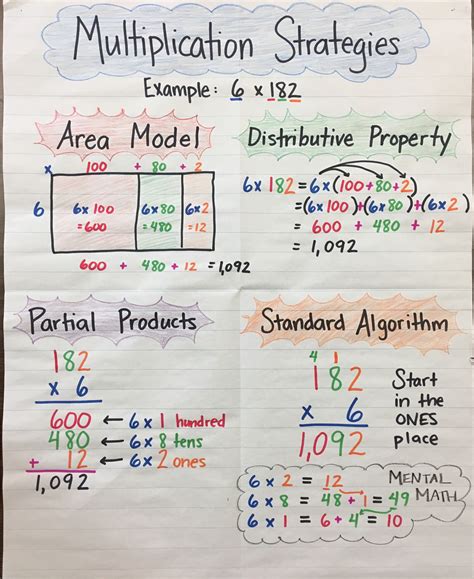 Multiplication Strategies
Example: 6 x 182
Area Model
x 100 + 80 + 2
6 6x100 6x80 6x2
=600 =480 =12
600 + 480 + 12 = 1,092
Distributive Property
6x182=6x(100+80+2)
=(6x100)+(6x80)+(6x2)
= 600 + 480 + 12
= 1,092
Partial Products
182
x 6
600 ← 6x1 hundred
480 ← 6x8 tens
+ 12 ← 6x2 ones
1,092
Standard Algorithm
4 1
182
x 6
1,092
Start
in the
ONES
place
6 x 2 = 12
6 x 8 = 48 + 1 = 49
6 x 1 = 6 + 4 = 10
MENTAL
MATH